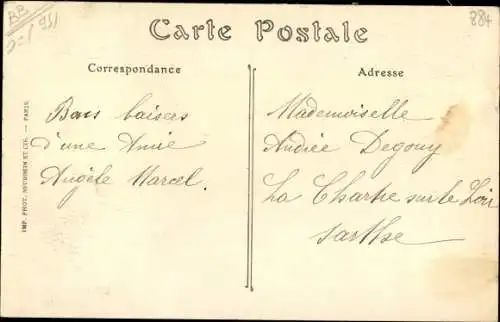 BB
884
Carte Postale
Correspondance
Adresse
Bons baisers
d'une Amie
Angèle Marcel.
Mademoiselle
Andrée Degouy
La Chartre sur le Loir
Sarthe
IMP. PHOT. NEURDEIN ET CIE. — PARIS.